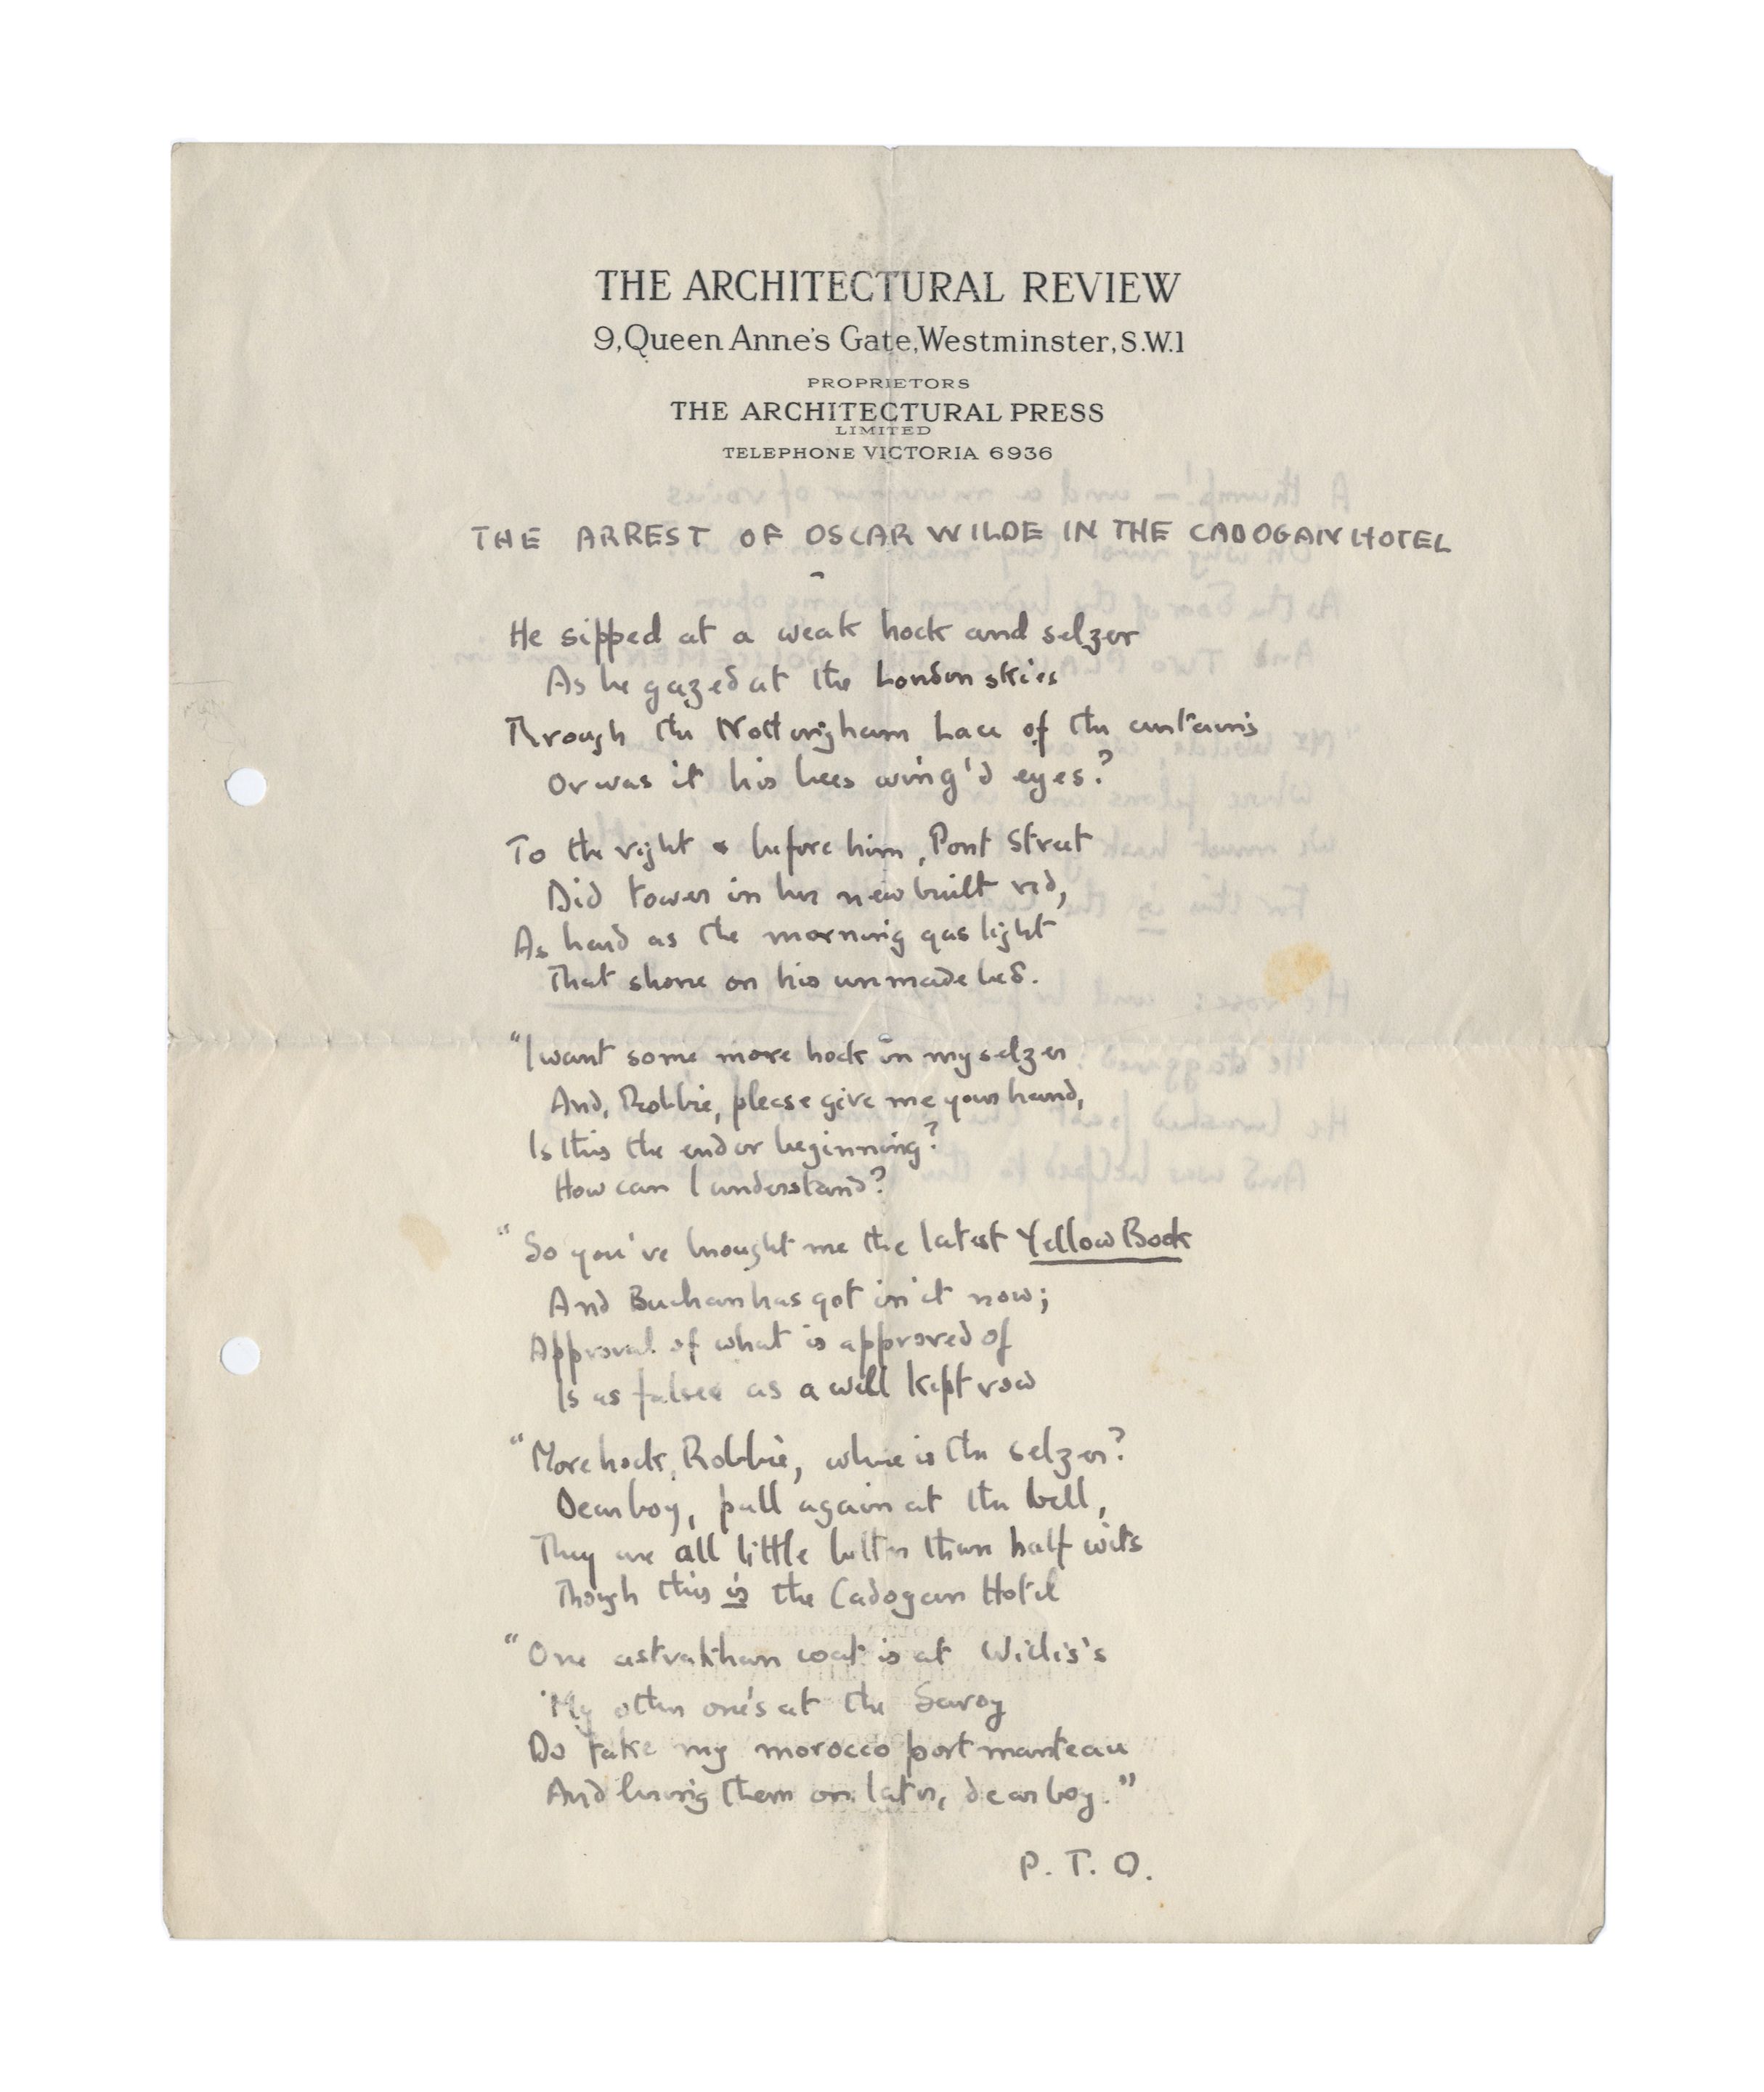 THE ARCHITECTURAL REVIEW
9, Queen Anne's Gate, Westminster, S.W.1
PROPRIETORS
THE ARCHITECTURAL PRESS
LIMITED
TELEPHONE VICTORIA 6936
THE ARREST OF OSCAR WILDE IN THE CADOGAN HOTEL
He sipped at a weak hock and selzer
As he gazed at the London skies
Through the Nottingham Lace of the curtains
Or was it his bees wing'd eyes?
To the right & before him, Pont Street
Did tower in her new built red,
As hard as the morning gas light
That shone on his unmade bed.
"I want some more hock in my selzer
And, Robbie, please give me your hand,
Is this the end or beginning?
How can I understand?
"So you've brought me the latest Yellow Book
And Buchan has got in it now;
Approval of what is approved of
Is as false as a well kept vow
"More hock, Robbie, where is the selzer?
Dear boy, pull again at the bell,
They are all little better than half wits
Though this is the Cadogan Hotel
"One astrakhan coat is at Willis's
My other one's at the Savoy
Do take my morocco portmanteau
And bring them on later, dear boy."
P. T. O.